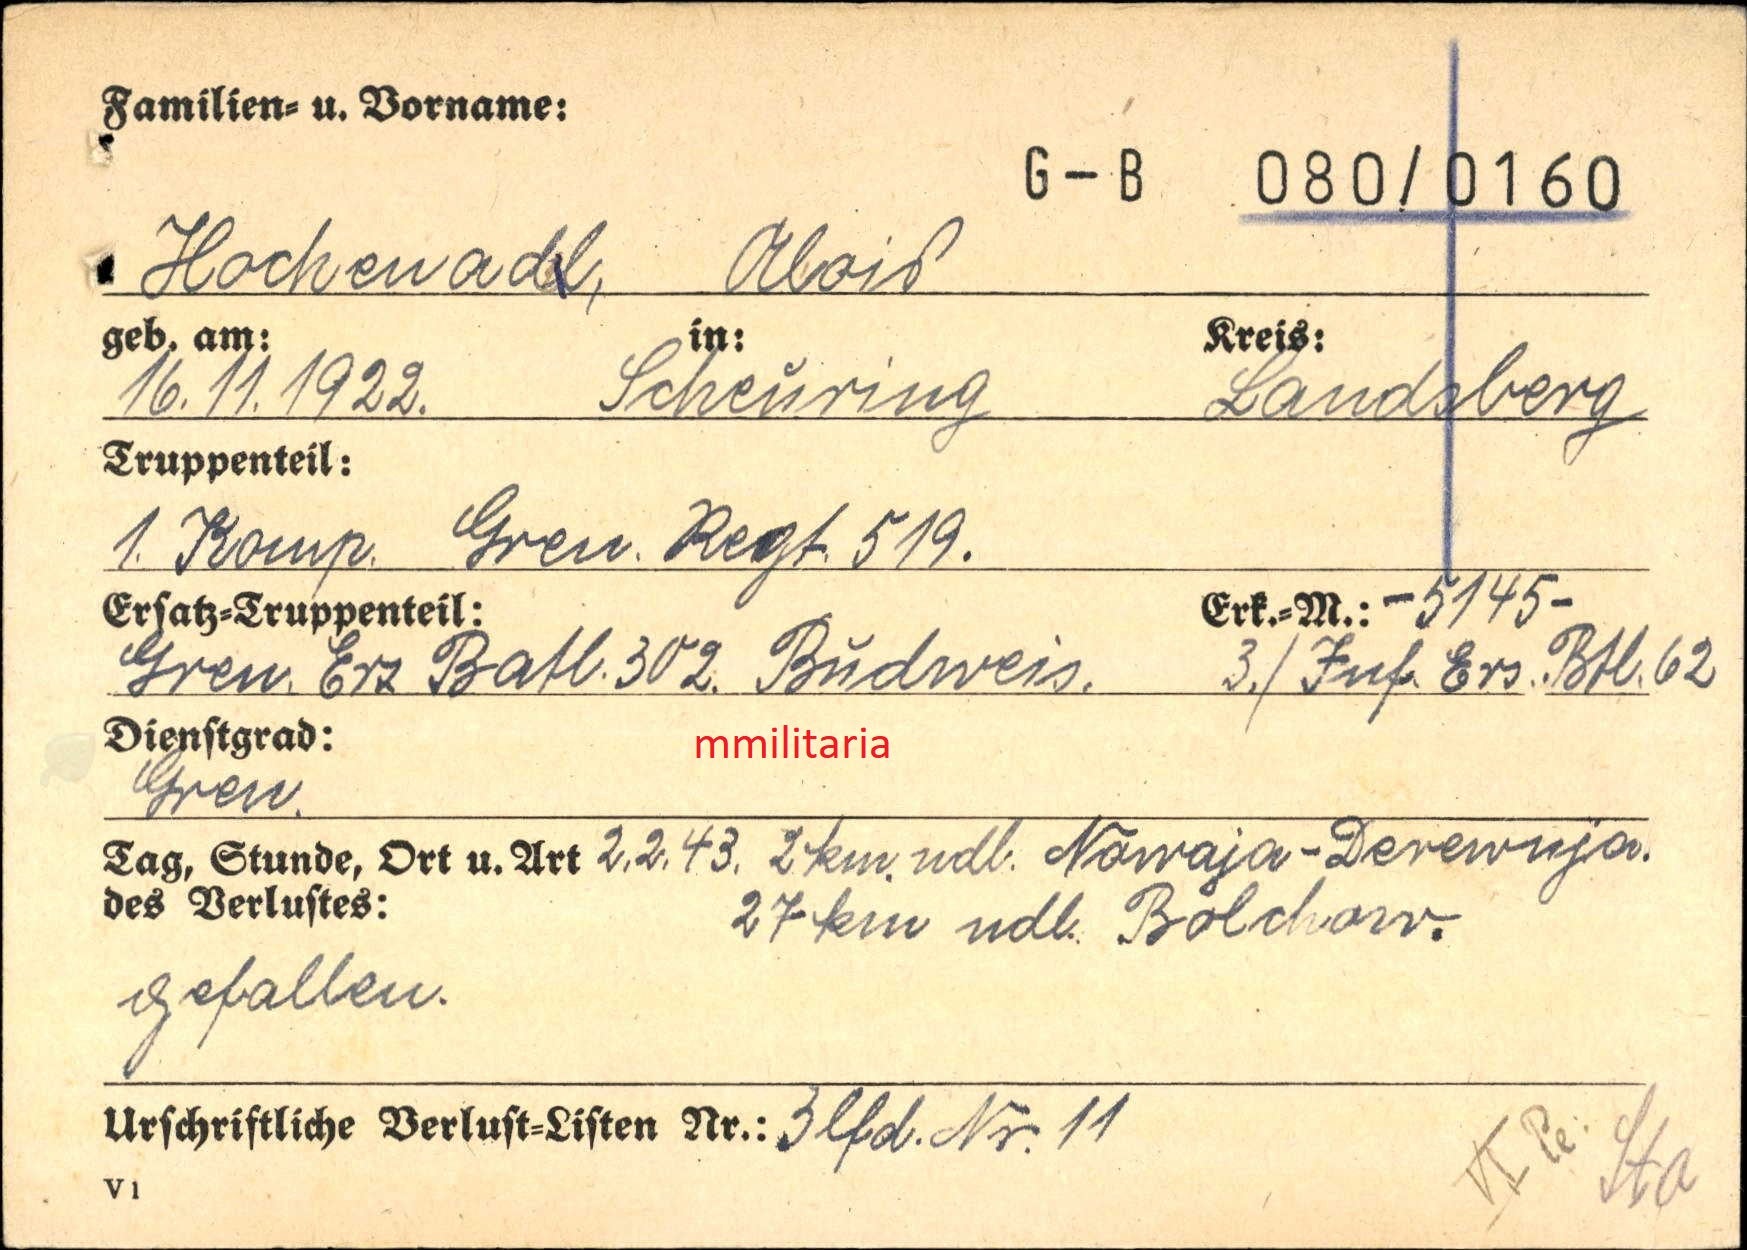 Familien- u. Vorname:
G-B 080/0160
Hochenadl, Alois
geb. am: in: Kreis:
16.11.1922. Scheuring Landsberg
Truppenteil:
1. Komp. Gren. Regt. 519.
Ersatz-Truppenteil: Erk.-M.: -5145-
Gren. Ers Batl. 302. Budweis. 3./Inf. Ers. Btl. 62
Dienstgrad:
mmilitaria
Gren.
Tag, Stunde, Ort u. Art 2.2.43. 2 km. ndl. Nowaja-Derewnja.
des Verlustes: 27 km ndl. Bolchow.
gefallen.
Urschriftliche Verlust-Listen Nr.: 3 lfd. Nr. 11
V 1
VI Pe. Sta